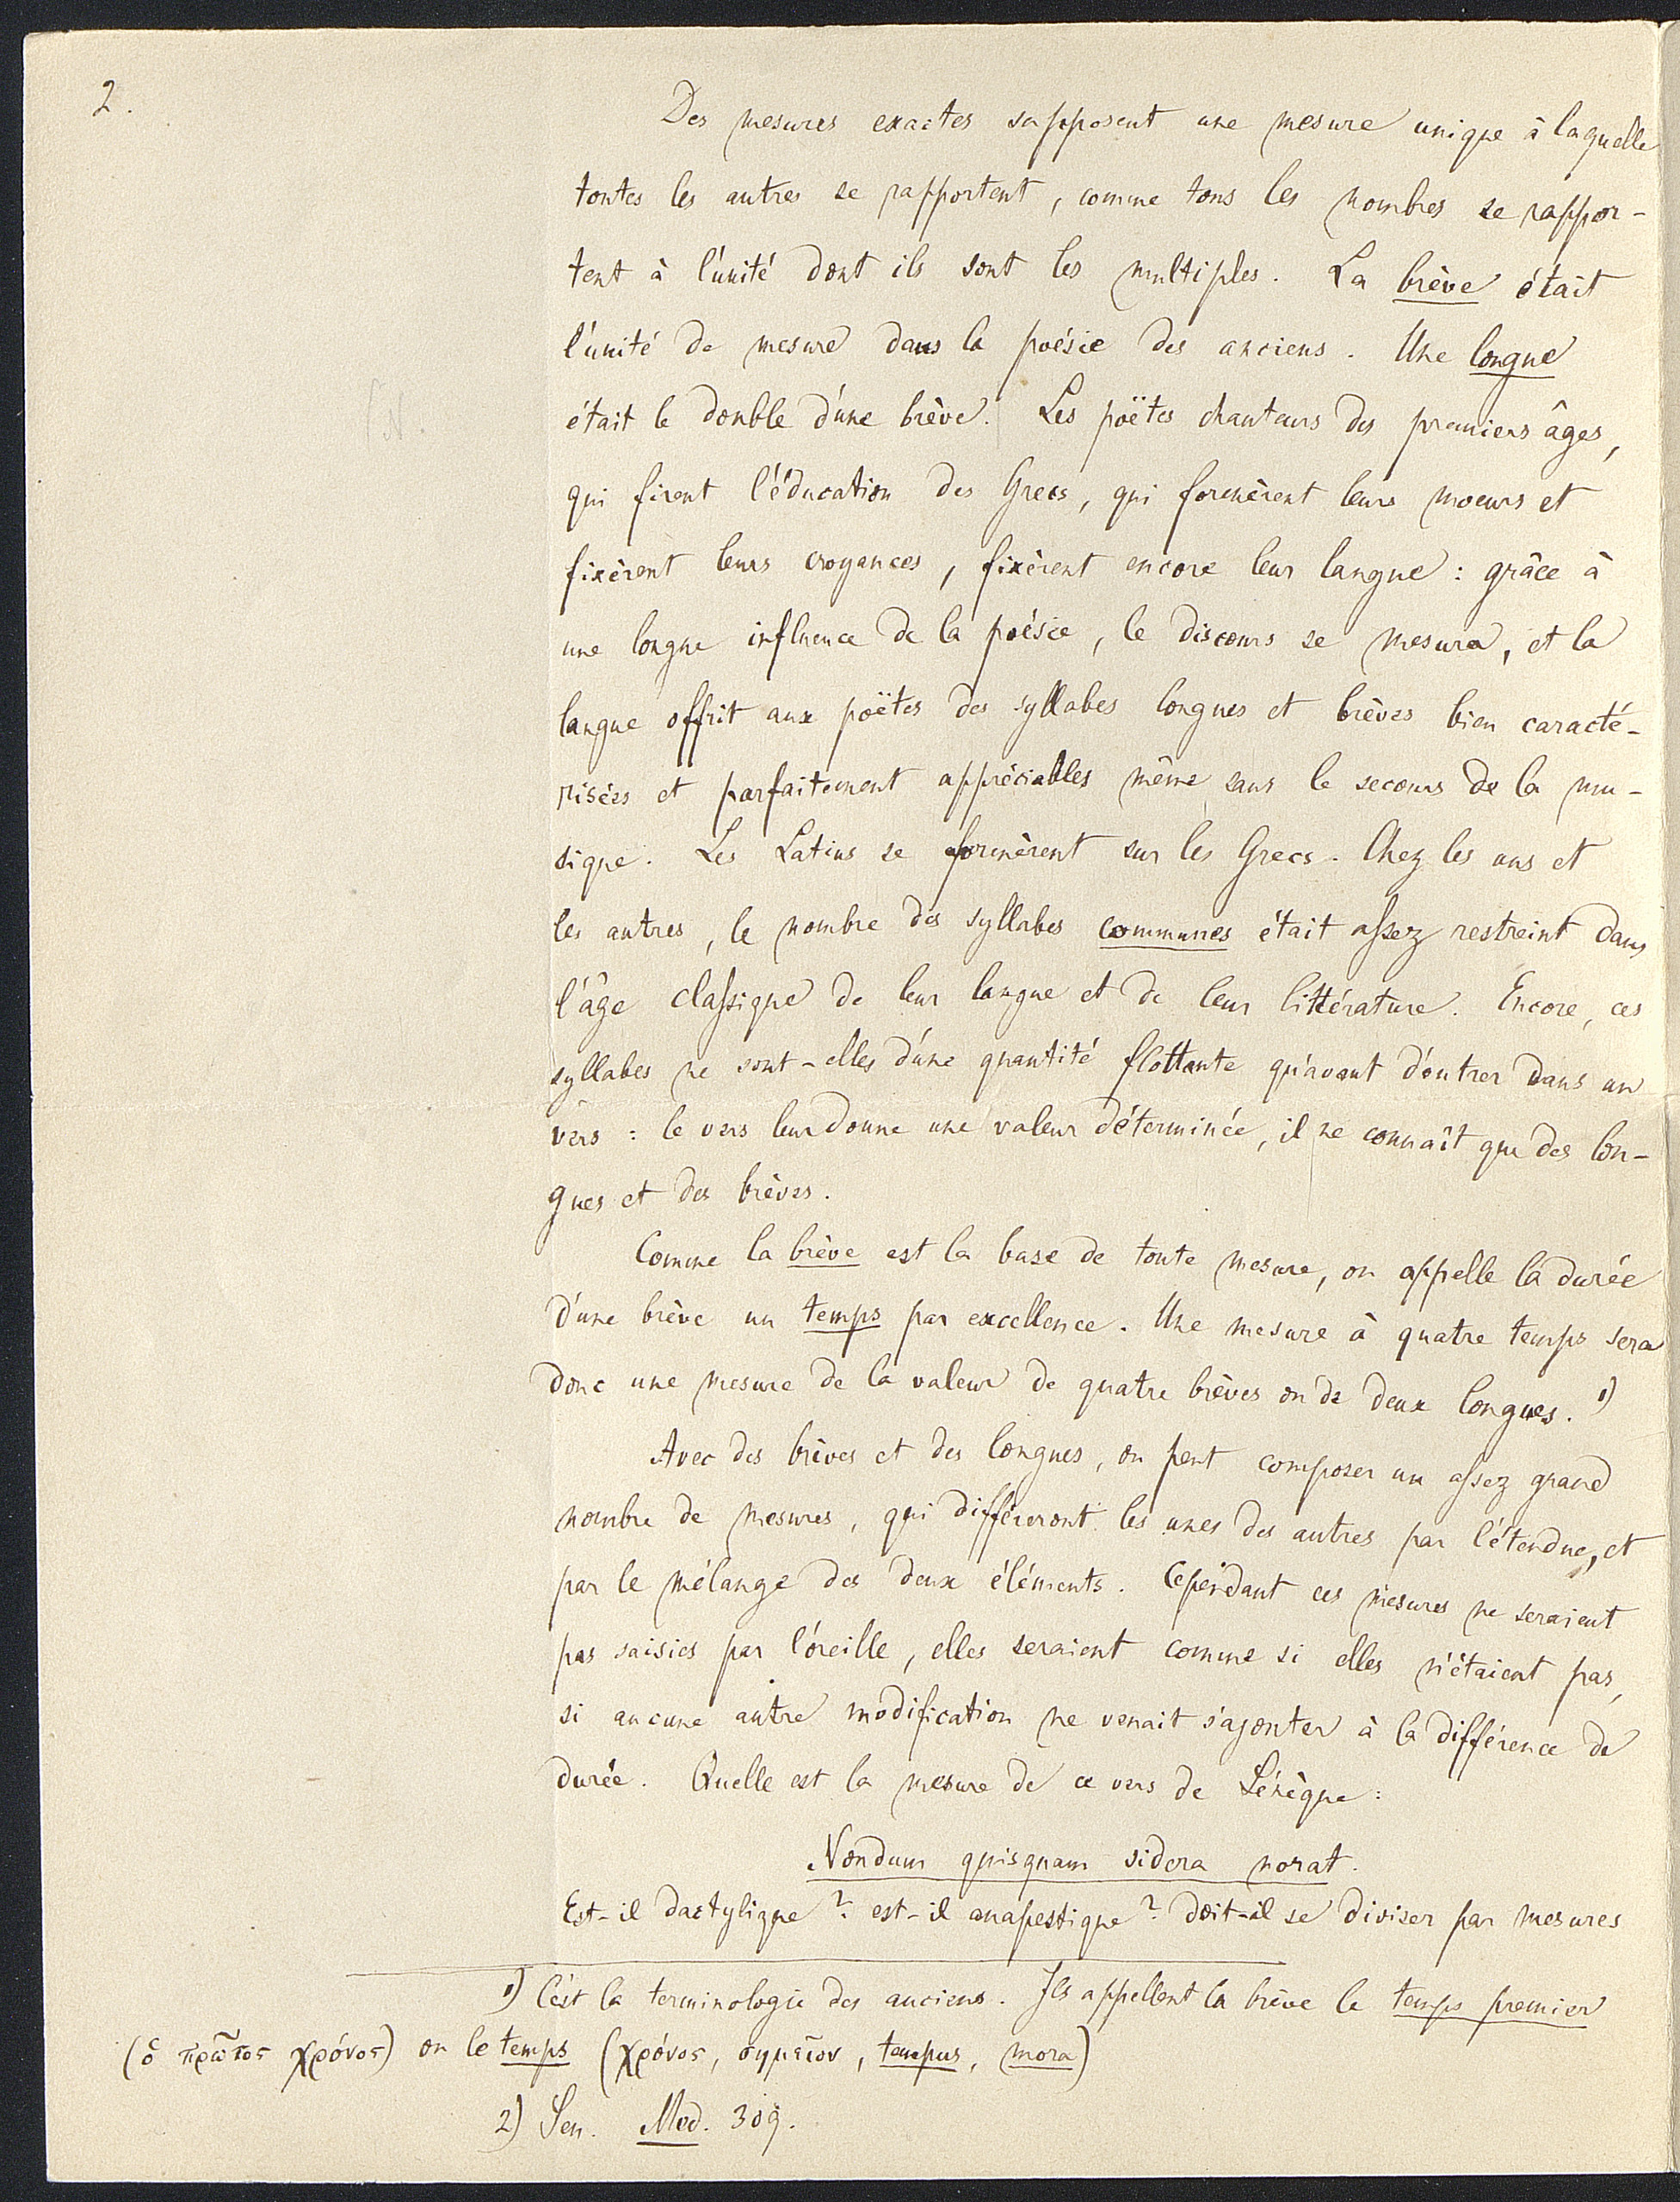 2.
Des mesures exactes supposent une mesure unique à laquelle
toutes les autres se rapportent, comme tous les nombres se rappor-
tent à l'unité dont ils sont les multiples. La brève était
l'unité de mesure dans la poésie des anciens. Une longue
était le double d'une brève. Les poëtes chanteurs des premiers âges,
qui firent l'éducation des Grecs, qui formèrent leurs moeurs et
fixèrent leurs croyances, fixèrent encore leur langue : grâce à
une longue influence de la poésie, le discours se mesura, et la
langue offrit aux poëtes des syllabes longues et brèves bien caracté-
risées et parfaitement appréciables même sans le secours de la mu-
sique. Les Latins se formèrent sur les Grecs. Chez les uns et
les autres, le nombre des syllabes communes était assez restreint dans
l'âge classique de leur langue et de leur littérature. Encore, ces
syllabes ne sont-elles d'une quantité flottante qu'avant d'entrer dans un
vers : le vers leur donne une valeur déterminée, il ne connaît que des lon-
gues et des brèves.
Comme la brève est la base de toute mesure, on appelle la durée
d'une brève un temps par excellence. Une mesure à quatre temps sera
donc une mesure de la valeur de quatre brèves ou de deux longues. 1)
Avec des brèves et des longues, on peut composer un assez grand
nombre de mesures, qui différeront les unes des autres par l'étendue, et
par le mélange des deux éléments. Cependant ces mesures ne seraient
pas saisies par l'oreille, elles seraient comme si elles n'étaient pas,
si aucune autre modification ne venait s'ajouter à la différence de
durée. Quelle est la mesure de ce vers de Sénèque :
Nondum quisquam sidera norat.
Est-il dactylique ? est-il anapestique ? doit-il se diviser par mesures
1) C'est la terminologie des anciens. Ils appellent la brève le temps premier
(ὁ πρῶτος χρόνος) ou le temps (χρόνος, σημεῖον, tempus, mora)
2) Sen. Med. 309.